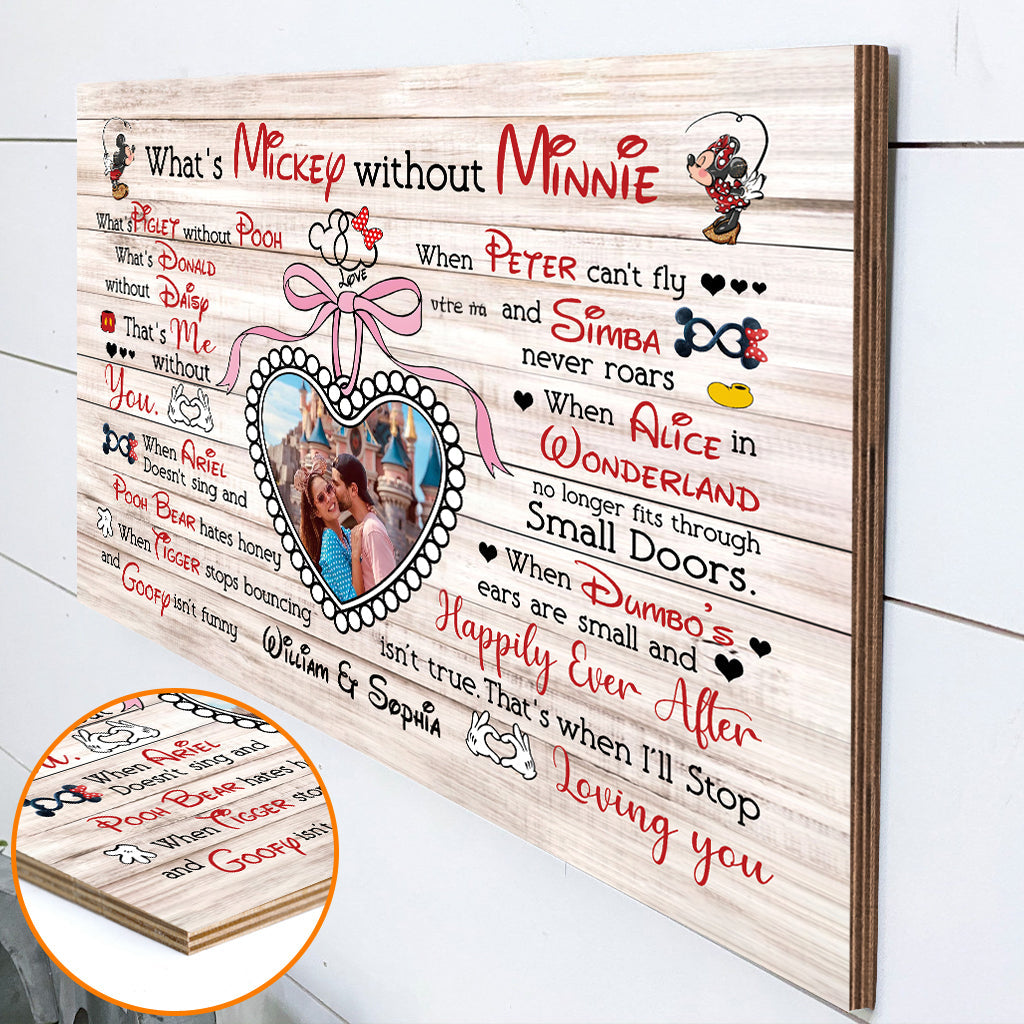 What's MICKEY without MINNIE
What's PIGLET without POOH
What's DONALD
without DAISY
That's Me
without
You.
When ARIEL
Doesn't sing and
POOH BEAR hates honey
When TIGGER stops bouncing
and GOOFY isn't funny
LOVE
William & Sophia
When PETER can't fly
and SIMBA
never roars
When ALICE in
WONDERLAND
no longer fits through
Small Doors.
When DUMBO'S
ears are small and
Happily Ever After
isn't true. That's when I'll Stop
Loving you
u.
When ARIEL
Doesn't sing and
POOH BEAR hates h
When TIGGER sto
and GOOFY isn't